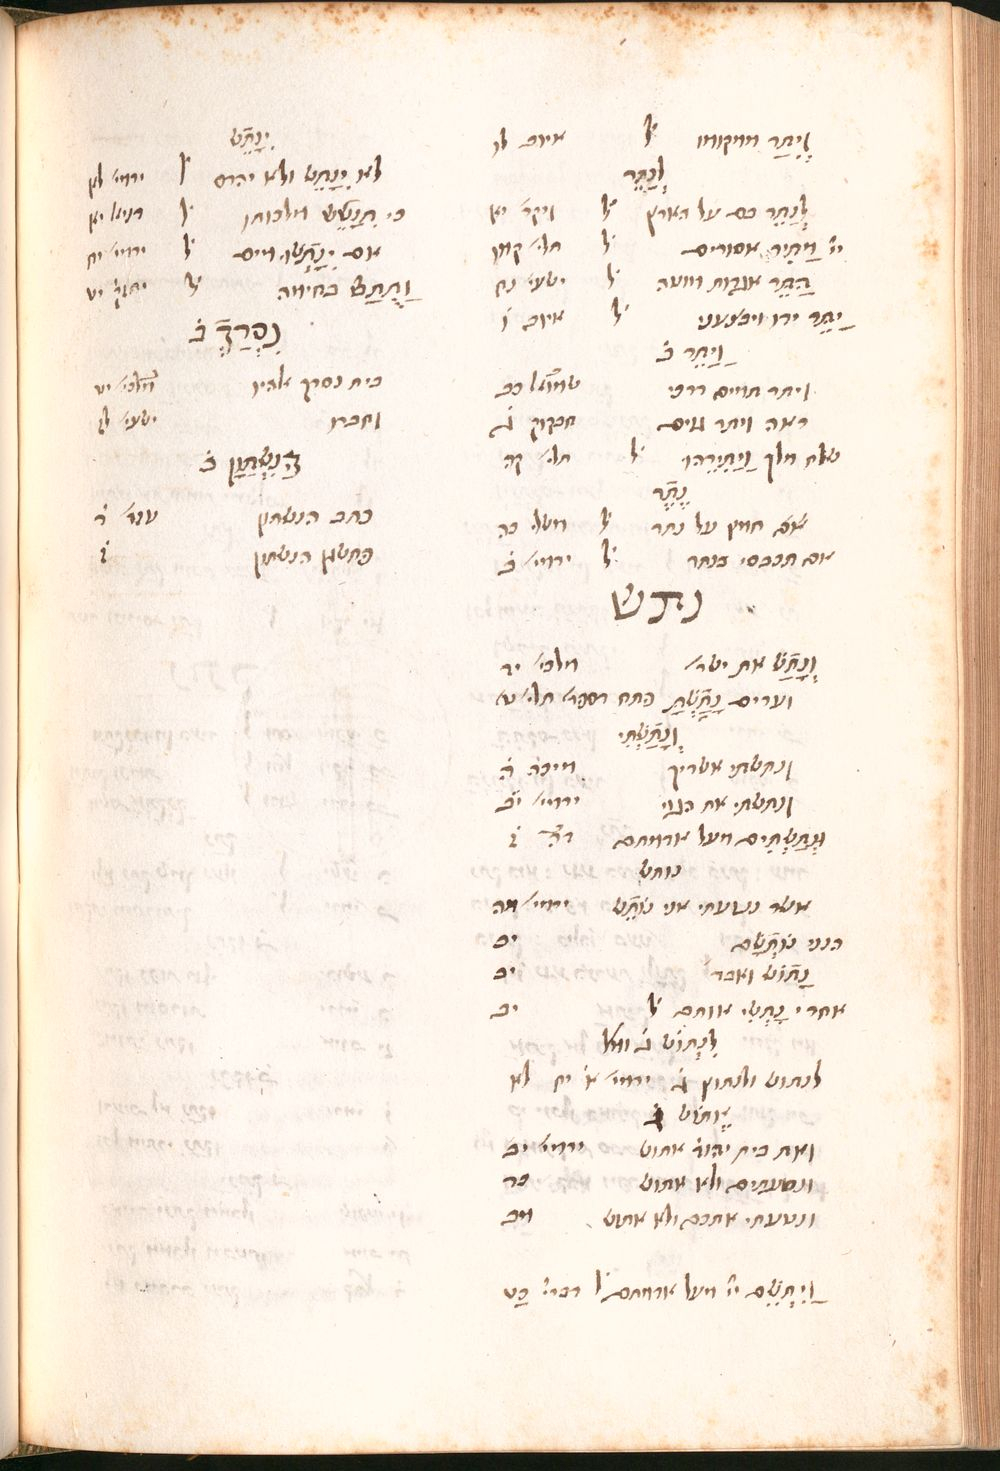 וְיִתַּר ממקומו ל איוב לז
לְנַתֵּר
לְנַתֵּר בם על הארץ ל ויקר׳ יא
יי׳ מַתִּיר אסורים ל תלי׳ קמו
הַתֵּר אגדות מוטה ל ישעי׳ נח
יַתֵּר ידו ויבצעני ל איוב ו
וַיַּתֵּר ב
ויתר תמים דרכי שמואל כב
ראה ויתר גוים חבקוק ג
שלח מלך וַיַתִּירֵהוּ ל תלי׳ קה
נֶתֶר
חמץ על נתר ל משלי כה
אם תכבסי בנתר ל ירמי׳ ב
נתש
וְנָתַשׁ את ישר׳ מלכי׳ יד
וערים נָתַשְׁתָּ פתח תלי׳ ט
וְנָתַשְׁתִּי
ונתשתי אשריך מיכה ה
ונתשתי את הגוי ירמי׳ יב
וּנְתַשְׁתִּים מעל אדמתם
נותש
אשר נטעתי אני נוֹתֵשׁ ירמי׳ מה
הנני נוֹתְשָׁם יב
נָתוֹשׁ ואבד יב
אחרי נָתְשִׁי אותם ל יב
לִנְתוֹשׁ ג
לנתוש ולנתוץ ג ירמי׳ א יח לא
אֶתּוֹשׁ
ואת בית יהודה אתוש ירמי׳ יב
ונטעתים ולא אתוש כד
ונטעתי אתכם ולא אתוש מב
וַיִּתְּשֵׁם יי׳ מעל אדמתם ל דברי׳ כט
יִנָּתֵשׁ
לא יִנָּתֵשׁ ולא יהרס ל ירמי׳ לא
כי תִנָּתֵשׁ מלכותו ל דניאל יא
אם יִנָּתְשׁוּ מים ל ירמי׳ יח
וַתֻּתַּשׁ בחימה ל יחזק׳ יט
נִסְרֹךְ ב
בית נסרך אלהיו מלכי׳ יט
וחברו ישעי׳ לז
הַנִּשְׁתְּוָן ב
כתב הנשתון עזר׳ ד
פתשגן הנשתון ז